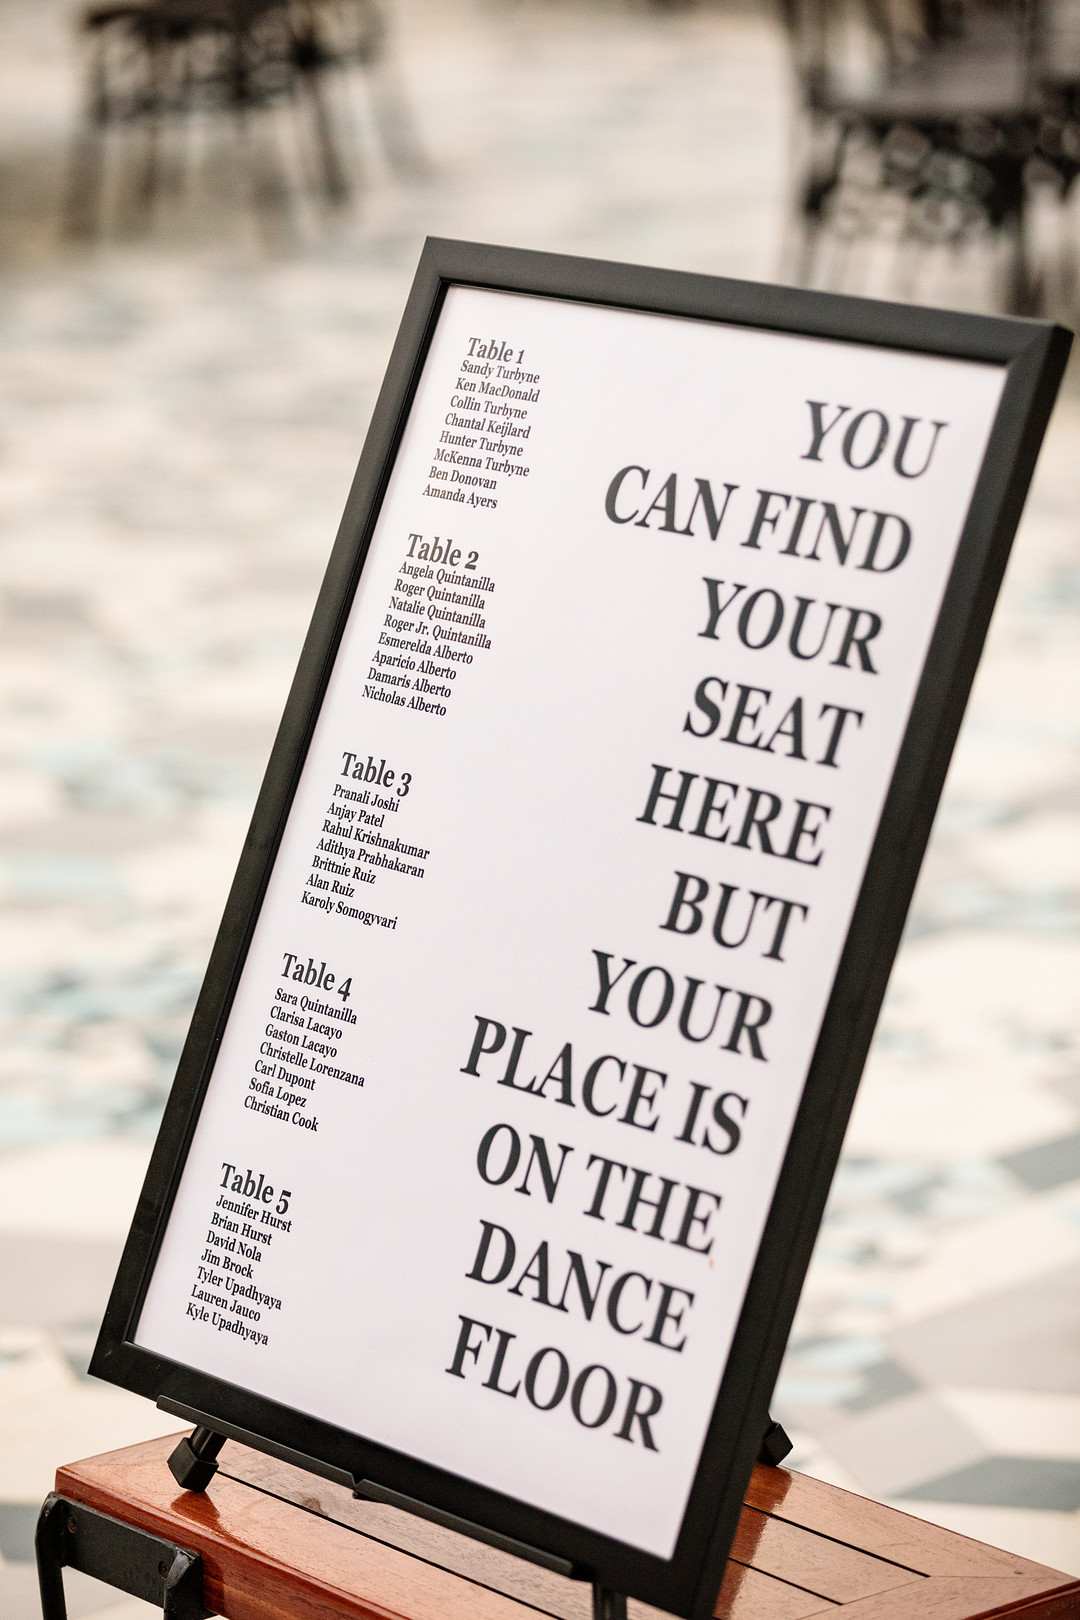 Table 1
Sandy Turbyne
Ken MacDonald
Collin Turbyne
Chantal Keijlard
Hunter Turbyne
McKenna Turbyne
Ben Donovan
Amanda Ayers
Table 2
Angela Quintanilla
Roger Quintanilla
Natalie Quintanilla
Roger Jr. Quintanilla
Esmerelda Alberto
Aparicio Alberto
Damaris Alberto
Nicholas Alberto
Table 3
Pranali Joshi
Anjay Patel
Rahul Krishnakumar
Adithya Prabhakaran
Brittnie Ruiz
Alan Ruiz
Karoly Somogyvari
Table 4
Sara Quintanilla
Clarisa Lacayo
Gaston Lacayo
Christelle Lorenzana
Carl Dupont
Sofia Lopez
Christian Cook
Table 5
Jennifer Hurst
Brian Hurst
David Nola
Jim Brock
Tyler Upadhyaya
Lauren Jauco
Kyle Upadhyaya
YOU
CAN FIND
YOUR
SEAT
HERE
BUT
YOUR
PLACE IS
ON THE
DANCE
FLOOR